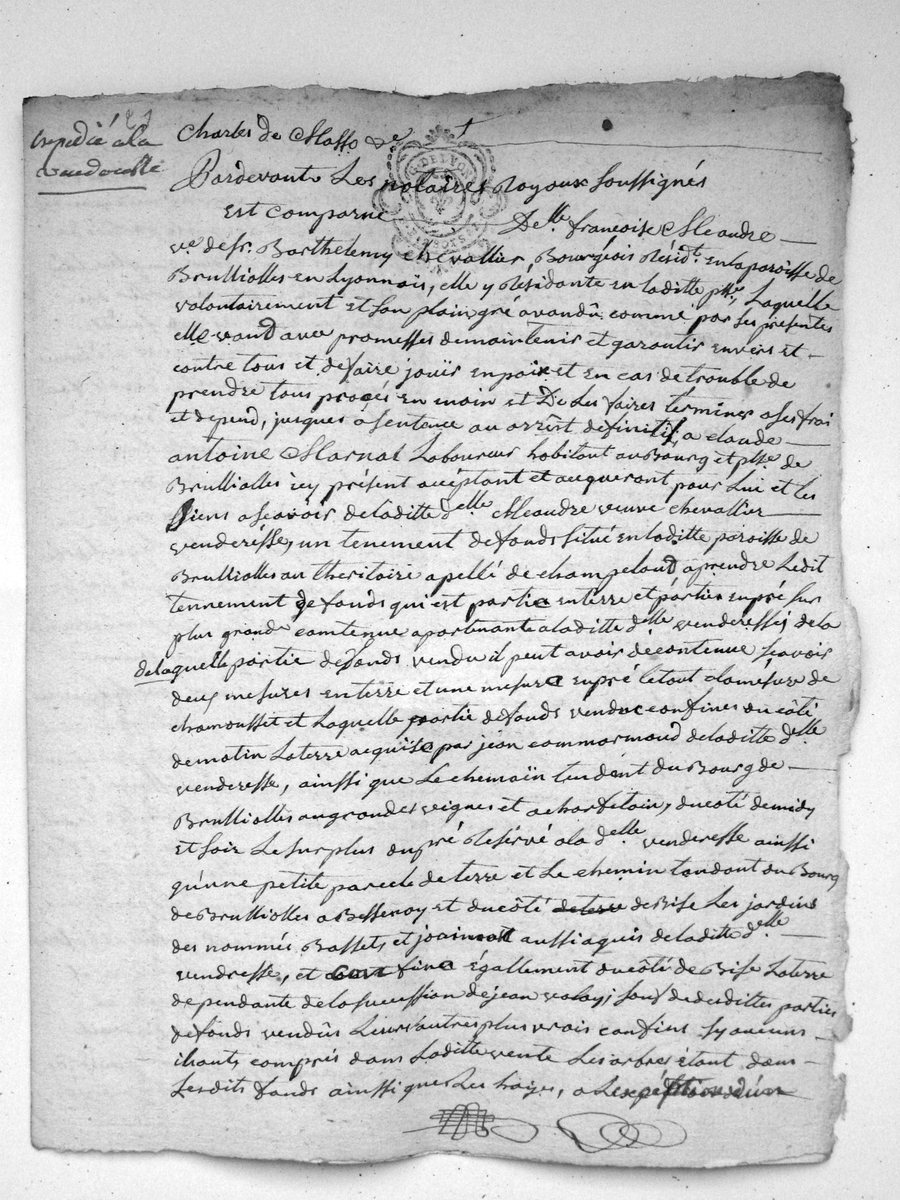 Expedié a la
Charles de Masso &e
Pardevant Les notaires Royaux Soussignés
G. DE LYON
Est comparue Delle françoise Meandre
ve de sr. Barthelemy chevallier Bourgeois Résidt. en la paroisse de
Brulliolles en Lyonnois, elle y Résidante en laditte psse, Laquelle
volontairement et son plain gré a vandû comme par ses presentes
elle vand avec promesses de maintenir et garantir envers et
contre tous et de faire joüir en paix et en cas de trouble de
prendre tous procés en main et De Les faires terminer a ses frai
et depend, jusques a sentence au arrêst definitif, a claude
antoine Marnat Laboureur habitant au Bourg et psse. de
Brulliolles icy présent acéptant et acquerant pour Lui et les
siens a scavoir de laditte delle Meandre veuve chevallier
venderésse, un tenement de fonds situé en laditte paroisse de
Brulliolles au theritoire apellé de champeloud a prendre Ledit
tennement de fonds qui est partie en terre et partie en pré sur
plus grande contenue apartenante a laditte delle venderesse, de la
de laquelle partie de fonds vendu il peut avoir de contenue scavoir
deux mesures en terre et une mesure en pré le tout a la mésure de
chamousset et Laquelle partie de fonds vendue confines du côté
de matin La terre acquise par jean commarmond de laditte delle
venderesse, ainssi que Le chemain tendent du Bourg de
Brulliolles au grandes veignes et a charfetain, du coté de midy
et soir Le surplus du pré Résérvé a la delle venderesse ainssi
qu'une petite parcele de terre et Le chemin tandant du Bourg
de Brulliolles a Bessenay et du côté de terre de Bise Les jardins
des nommés Bassets et aussi aquis de laditte delle
vendresse, et confine égallement du côté de Bise La terre
dependante de la sucession de jean valay; sauf de desdittes parties
de fonds vendus Leurs autres plus vrais confins sy aucuns
étants compris dans Laditte vente Les arbres étant dans
Lesdits fonds ainssi que Les haÿes, a L'exéption d'un